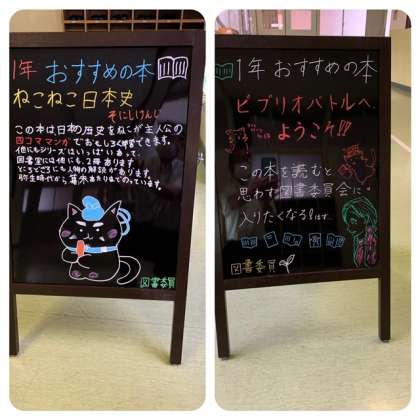 1年 おすすめの本
ねこねこ日本史
そにしけんじ
この本は日本の歴史をねこが主人公の
四コママンガでおもしろく学習できます。
他にもシリーズはいっぱいあって、
図書室には他にも、2冊あります。
ところどころに人物の解説があります。
弥生時代から幕末あたりまでのっています。
図書委員
1年 おすすめの本
ビブリオバトルへ
ようこそ!!
この本を読むと
思わず図書委員会に
入りたくなる!はず…
図書委員